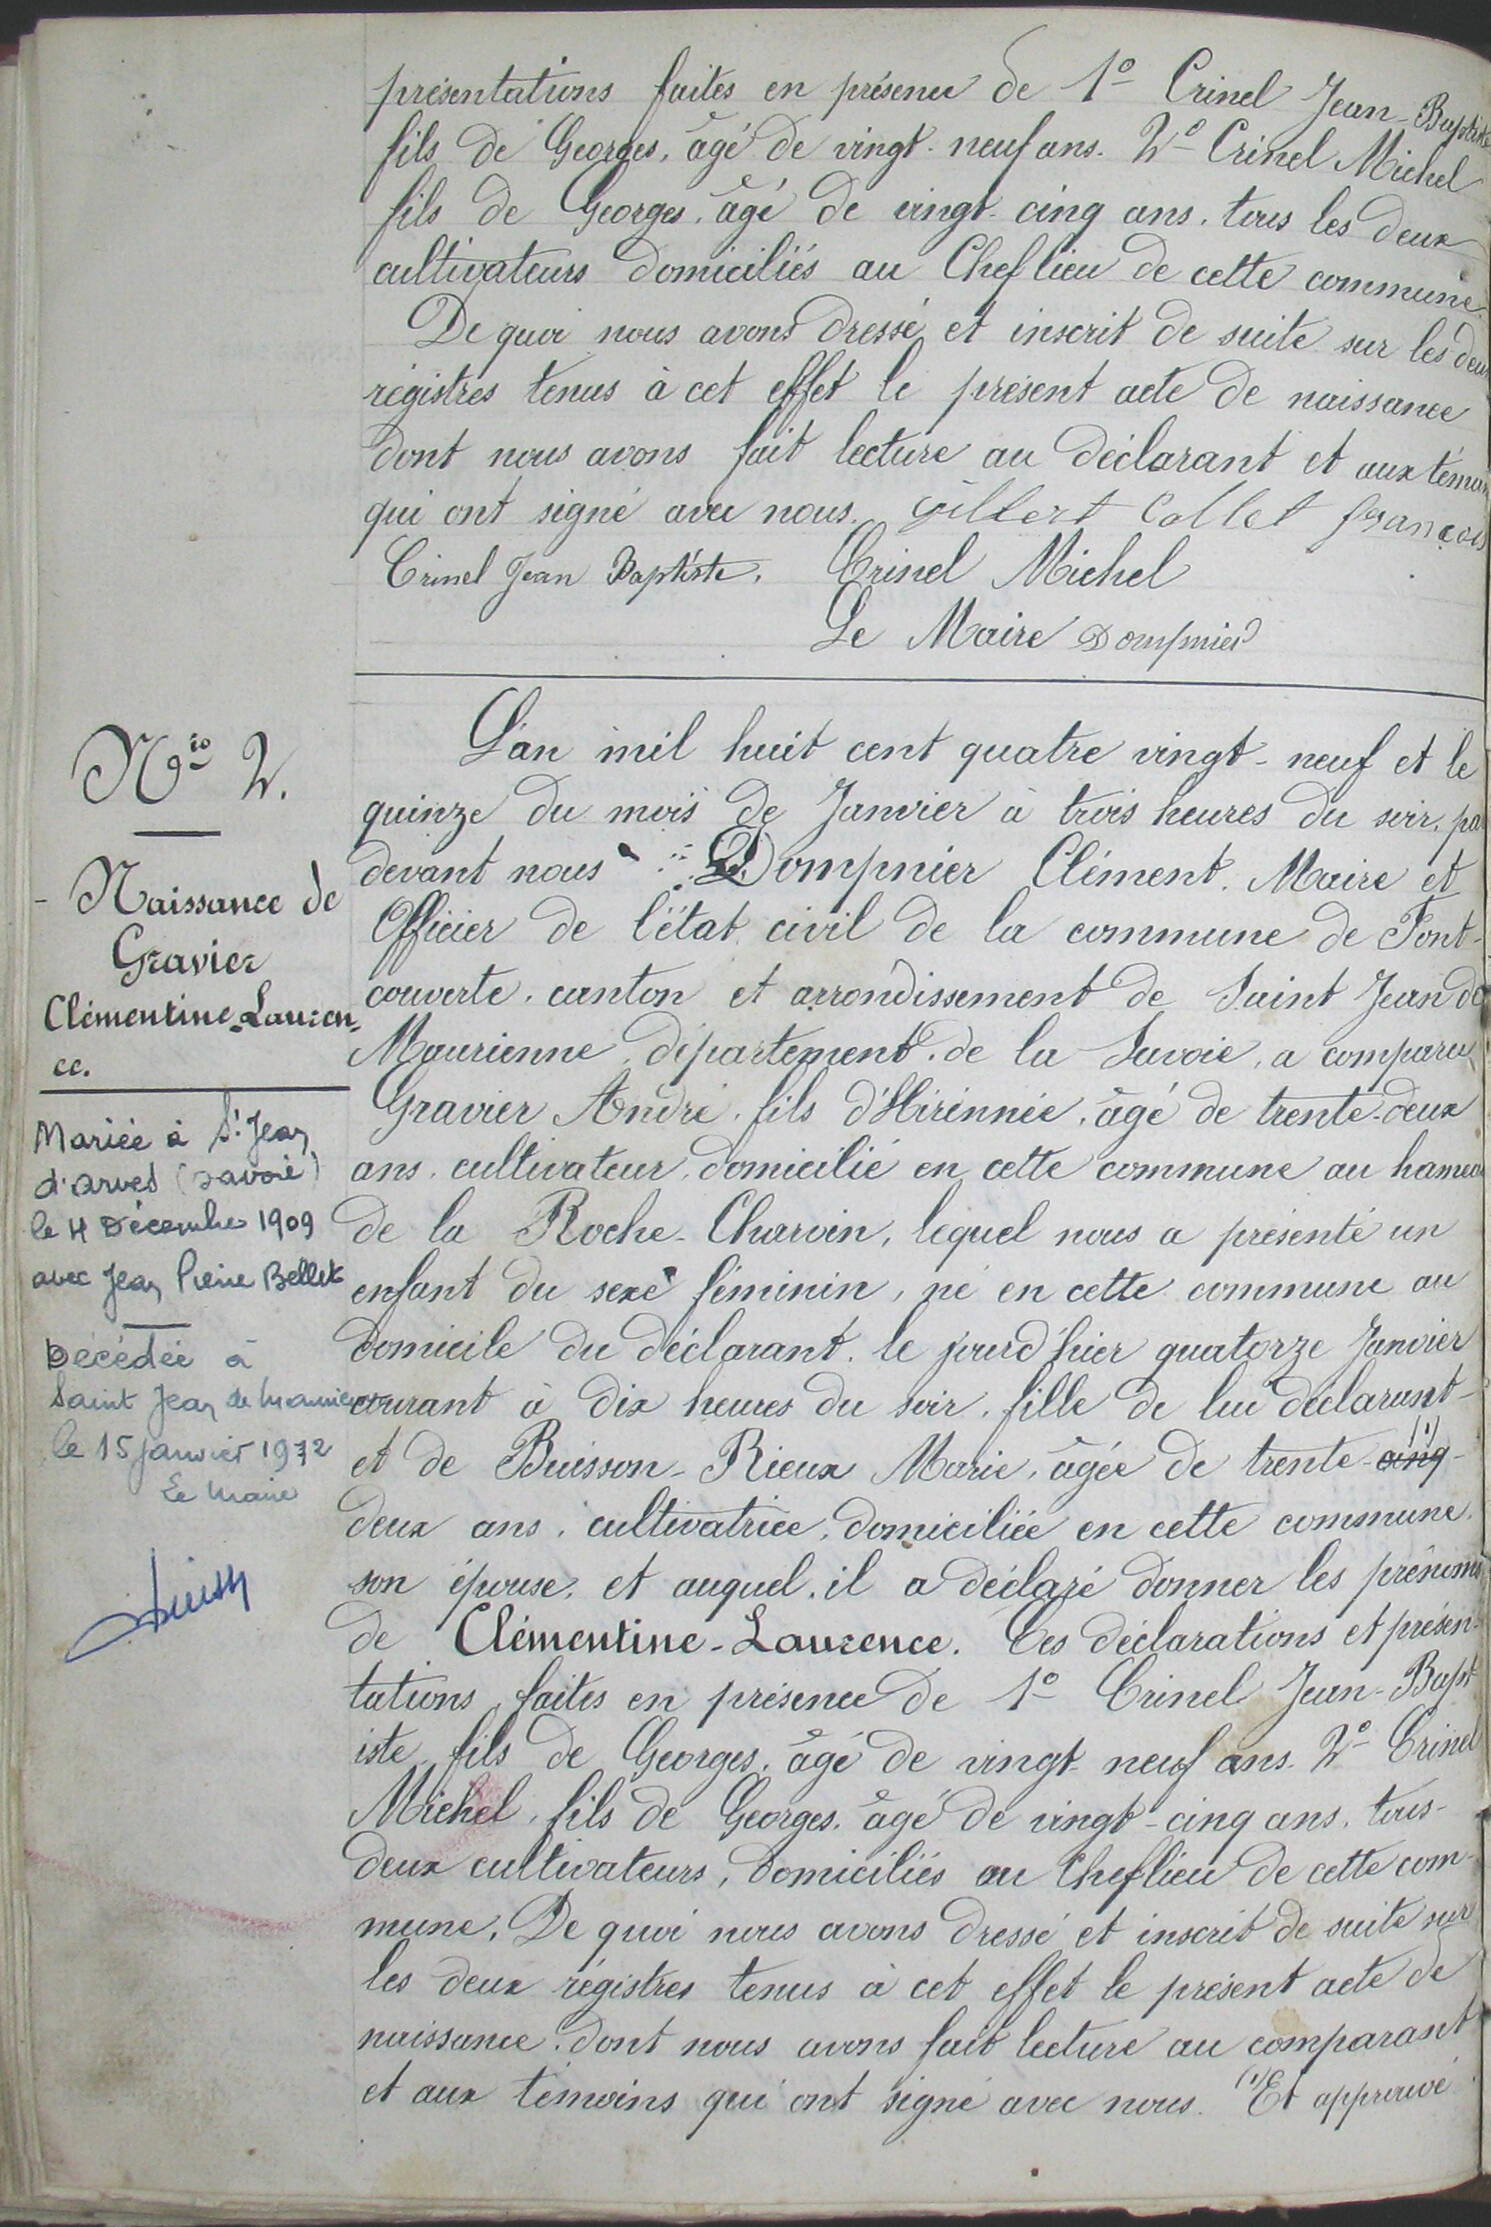 présentations faites en présence de 1º Crinel Jean-Baptiste
fils de Georges, âgé de vingt-neuf ans. 2º Crinel Michel
fils de Georges, âgé de vingt-cinq ans, tous les deux
cultivateurs domiciliés au Chef lieu de cette commune.
De quoi nous avons dressé et inscrit de suite sur les deux
régistres tenus à cet effet le présent acte de naissance
dont nous avons fait lecture au déclarant et aux témoins
qui ont signé avec nous. Gilbert Collet françois
Crinel Jean Baptiste. Crinel Michel
Le Maire Dompnier
Nº 2.
Naissance de
Gravier
Clémentine-Lauren-
ce.
Mariée à St Jean
d'arves (Savoie)
le 4 Décembre 1909
avec Jean Pierre Bellet
Décédée à
Saint Jean de Maurienne
le 15 janvier 1972
Le Maire
L'an mil huit cent quatre vingt-neuf et le
quinze du mois de Janvier à trois heures du soir, par
devant nous Dompnier Clément. Maire et
Officier de l'état civil de la commune de Font-
couverte, canton et arrondissement de Saint Jean de
Maurienne, département de la Savoie, a comparu
Gravier André, fils d'Hirénnée, âgé de trente-deux
ans, cultivateur, domicilié en cette commune au hameau
de la Roche-Charvin, lequel nous a présenté un
enfant du sexe féminin, né en cette commune au
domicile du déclarant, le jourd'hier quatorze Janvier
courant à dix heures du soir, fille de lui déclarant-
et de Buisson-Rieux Marie, âgée de trente-cinq (1)
deux ans, cultivatrice, domiciliée en cette commune,
son épouse, et auquel il a déclaré donner les prénoms
de Clémentine-Laurence. Ces déclarations et présen-
tations faites en présence de 1º Crinel Jean-Bapt
iste fils de Georges, âgé de vingt-neuf ans. 2º Crinel
Michel, fils de Georges, âgé de vingt-cinq ans, tous-
deux cultivateurs, domiciliés au Chef lieu de cette com-
mune. De quoi nous avons dressé et inscrit de suite sur
les deux régistres tenus à cet effet le présent acte de
naissance, dont nous avons fait lecture au comparant
et aux témoins qui ont signé avec nous. (1) Et approuvé